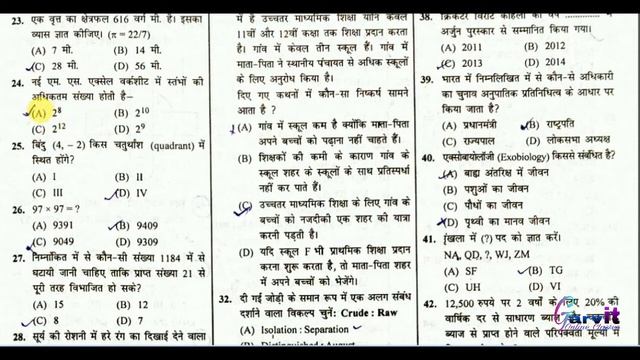 23. एक वृत्त का क्षेत्रफल 616 वर्ग मी. है। इसका
व्यास ज्ञात कीजिए। (π = 22/7)
(A) 7 मी. (B) 14 मी.
(C) 28 मी. (D) 56 मी.
24. नई एम. एस. एक्सेल वर्कशीट में स्तंभों की
अधिकतम संख्या होती है–
(A) 2⁸ (B) 2¹⁰
(C) 2¹² (D) 2⁹
25. बिंदु (4, – 2) किस चतुर्थांश (quadrant) में
स्थित होंगे?
(A) I (B) II
(C) III (D) IV
26. 97 × 97 = ?
(A) 9391 (B) 9409
(C) 9049 (D) 9309
27. निम्नांकित में से कौन-सी संख्या 1184 में से
घटायी जानी चाहिए ताकि प्राप्त संख्या 21 से
पूरी तरह विभाजित हो सके?
(A) 15 (B) 12
(C) 8 (D) 7
28. सूर्य की रोशनी में हरे रंग का दिखाई देने वाला
में है उच्चतर माध्यमिक शिक्षा यानि केवल
11वीं और 12वीं कक्षा तक शिक्षा प्रदान करता
है। गांव में केवल तीन स्कूल हैं। गांव में
माता-पिता ने स्थानीय पंचायत से अधिक स्कूलों
के लिए अनुरोध किया है।
दिए गए कथनों में कौन-सा निष्कर्ष सामने
आता है ?
(A) गांव में स्कूल कम है क्योंकि माता-पिता
अपने बच्चों को पढ़ाना नहीं चाहते हैं।
(B) शिक्षकों की कमी के कारण गांव के
स्कूल शहर के स्कूलों के साथ प्रतिस्पर्धा
नहीं कर पाते हैं।
(C) उच्चतर माध्यमिक शिक्षा के लिए गांव के
बच्चों को नजदीकी एक शहर की यात्रा
करनी पड़ती है।
(D) यदि स्कूल F भी प्राथमिक शिक्षा प्रदान
करना शुरू करता है, तो माता-पिता शहर
में अपने बच्चों को भेजेंगे।
32. दी गई जोड़ी के समान रूप में एक अलग संबंध
दर्शाने वाला विकल्प चुनें: Crude : Raw
(A) Isolation : Separation
38. क्रिकेटर विराट कोहली को वर्ष ............ में
अर्जुन पुरस्कार से सम्मानित किया गया।
(A) 2011 (B) 2012
(C) 2013 (D) 2014
39. भारत में निम्नलिखित में से कौन-से अधिकारी
का चुनाव अनुपातिक प्रतिनिधित्व के आधार पर
किया जाता है?
(A) प्रधानमंत्री (B) राष्ट्रपति
(C) राज्यपाल (D) लोकसभा अध्यक्ष
40. एक्सोबायोलॉजी (Exobiology) किससे संबंधित है?
(A) बाह्य अंतरिक्ष में जीवन
(B) पशुओं का जीवन
(C) पौधों का जीवन
(D) पृथ्वी का मानव जीवन
41. शृंखला में (?) पद को ज्ञात करें।
NA, QD, ?, WJ, ZM
(A) SF (B) TG
(C) UH (D) VI
42. 12,500 रुपये पर 2 वर्षों के लिए 20% की
वार्षिक दर से साधारण ब्याज
ब्याज से प्राप्त होने वाले परिपक्वता मूल्यों में
arvit
Online Classes